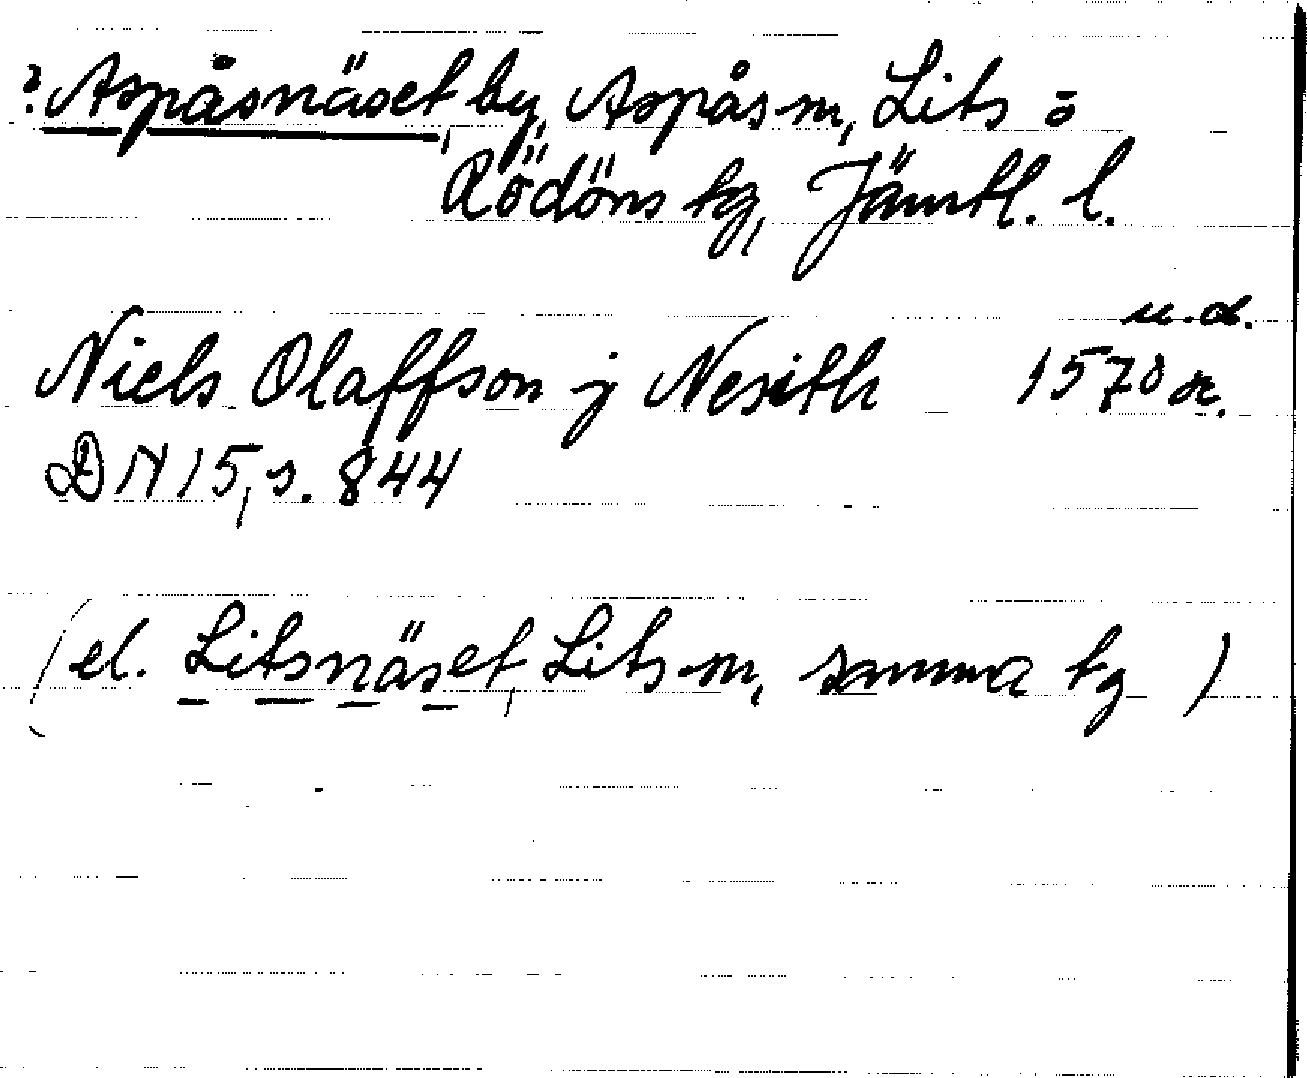 ? Aspåsnäset, by, Aspås sn, Lits o
Rödöns tg, Jämtl. l.
u.d.
Niels Olaffson j Nesith 1570 
DN 15, s. 844
(el. Litsnäset, Lits sn, samma tg )